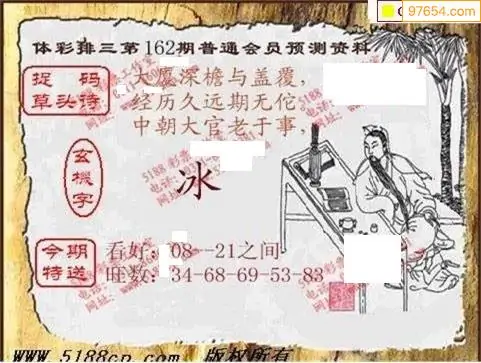 97654.com
体彩排三第162期普通会员预测资料
捉码
草头诗
大愿深檐与盖覆，
经历久远期无佗，
中朝大官老于事，
玄機字
冰
今期
特送
看好：08--21之间
旺数：34-68-69-53-83
www.5188cp.com 版权所有